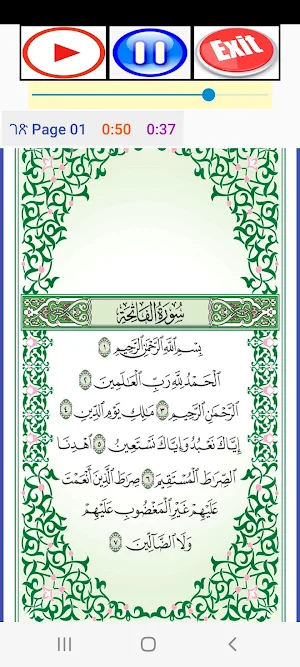 Exit
ገጽ Page 01 0:50 0:37
سُورَةُ الفَاتِحَةِ
بِسْمِ ٱللَّهِ ٱلرَّحْمَٰنِ ٱلرَّحِيمِ ١
ٱلْحَمْدُ لِلَّهِ رَبِّ ٱلْعَٰلَمِينَ ٢
ٱلرَّحْمَٰنِ ٱلرَّحِيمِ ٣ مَٰلِكِ يَوْمِ ٱلدِّينِ ٤
إِيَّاكَ نَعْبُدُ وَإِيَّاكَ نَسْتَعِينُ ٥ ٱهْدِنَا
ٱلصِّرَٰطَ ٱلْمُسْتَقِيمَ ٦ صِرَٰطَ ٱلَّذِينَ أَنْعَمْتَ
عَلَيْهِمْ غَيْرِ ٱلْمَغْضُوبِ عَلَيْهِمْ
وَلَا ٱلضَّآلِّينَ ٧